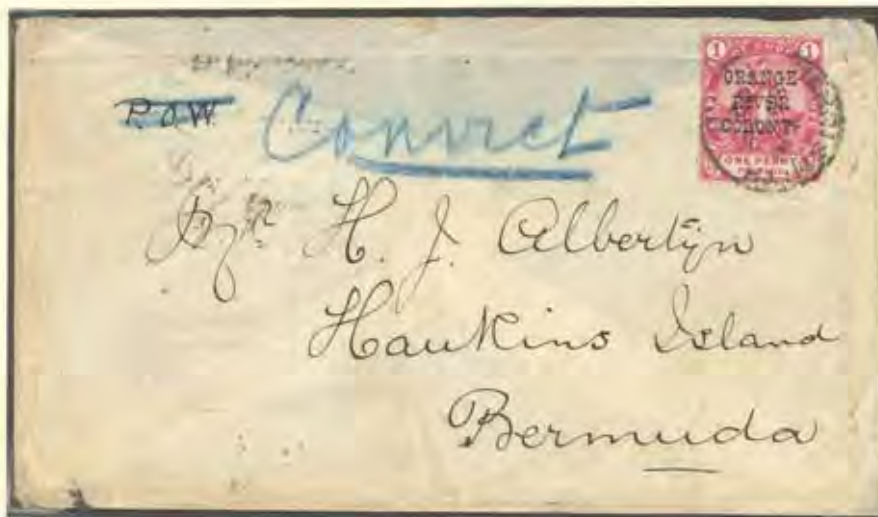 P.O.W.
Convict
1 1
ORANGE
RIVER
COLONY.
ONE PENNY
H. J. Albertijn
Hawkins Island
Bermuda